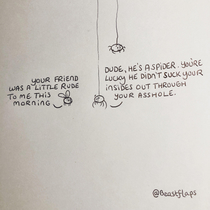 YOUR FRIEND
WAS A LITTLE RUDE
TO ME THIS
MORNING
DUDE, HE'S A SPIDER. YOU'RE
LUCKY HE DIDN'T SUCK YOUR
INSIDES OUT THROUGH
YOUR ASSHOLE.
@Beastflaps